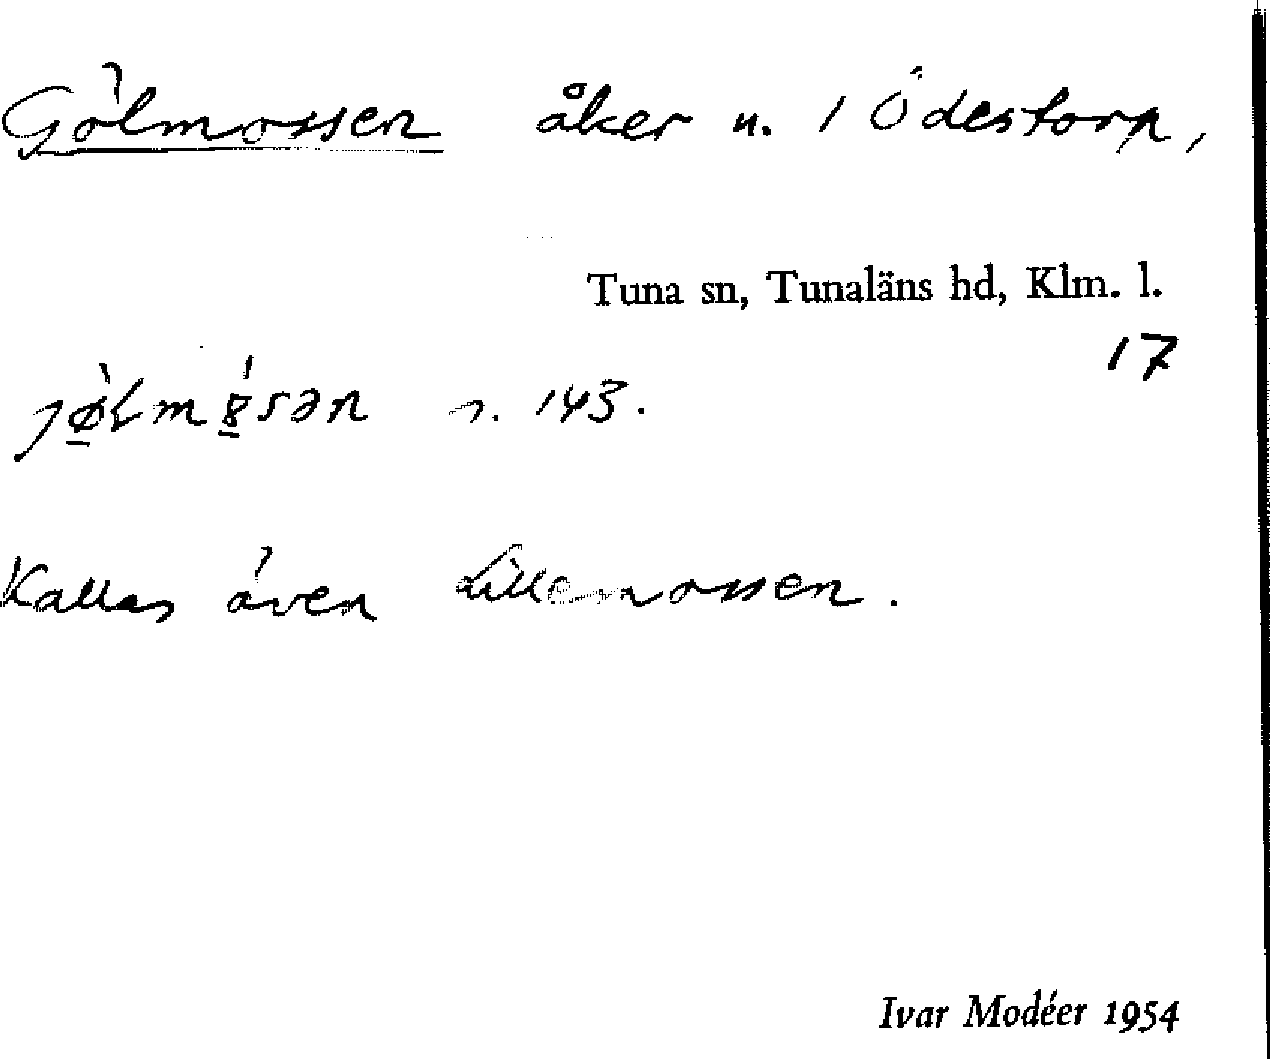 Gölmossen åker u. 1 Ödestorp,
Tuna sn, Tunaläns hd, Klm. l.
17
n. 143.
Kallas även Lillemossen.
Ivar Modéer 1954